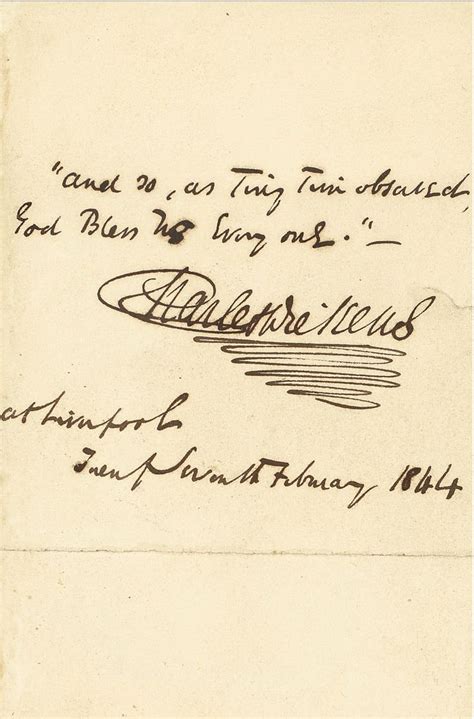 "and so, as Tiny Tim observed,
God Bless Us Every one."—
Charles Dickens
at Liverpool
Twenty Seventh February 1844